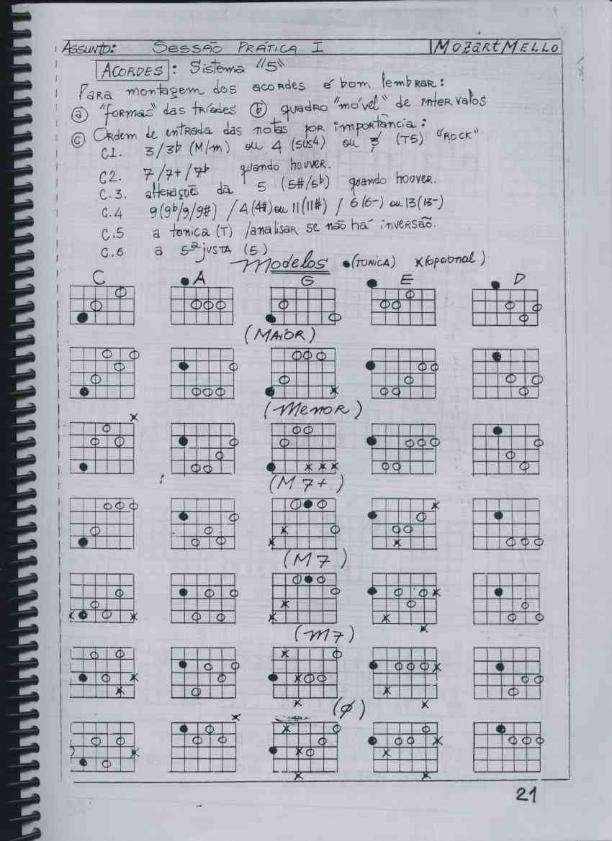 ASSUNTO: SESSÃO PRÁTICA I MOZART MELLO
ACORDES: Sistema "5"
Para montagem dos acordes é bom lembrar:
ⓐ "formas" das tríades ⓑ quadro "móvel" de intervalos
ⓒ Ordem de entrada das notas por importância:
C1. 3/3b (M/m) ou 4 (sus4) ou (T5) "ROCK"
C2. 7/7+/7b quando houver.
C.3. alteração da 5 (5#/5b) quando houver.
C.4 9(9b/9/9#) / 4(4#) ou 11(11#) / 6(6-) ou 13(13-)
C.5 a tonica (T) /analisar se não há inversão.
C.6 a 5ª JUSTA (5)
Modelos ●(TONICA) x(opcional)
C A G E D
(MAIOR)
(MENOR)
(M7+)
(M7)
(m7)
(Ø)
21